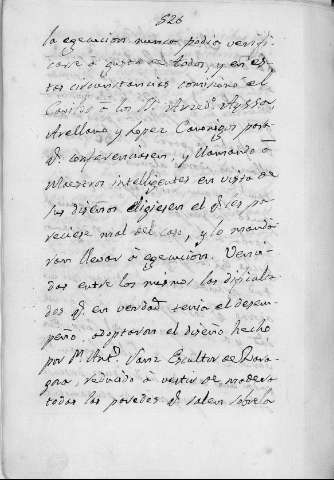 526
la egecucion nunca podia verifi
carse a gusto de todos, y en es
tas circunstancias comisionò el
Cavildo à los SS. Arced.º Aysso,
Arellano y Lopez Canonigos para
q. conferenciasen, y llamando à
Maestros intelligentes en vista de
sus diseños eligiesen el q. les pa
reciese mal del caso, y lo manda
ran llevar à egecucion. Venci
das entre los mismos las dificulta
des q. en verdad tenia el desem
peño, adoptaron el diseño hecho
por Mº Antº. Sanz Escultor de Zara
goza, reducido à vestir de madera
todas las paredes q. salen sobre la